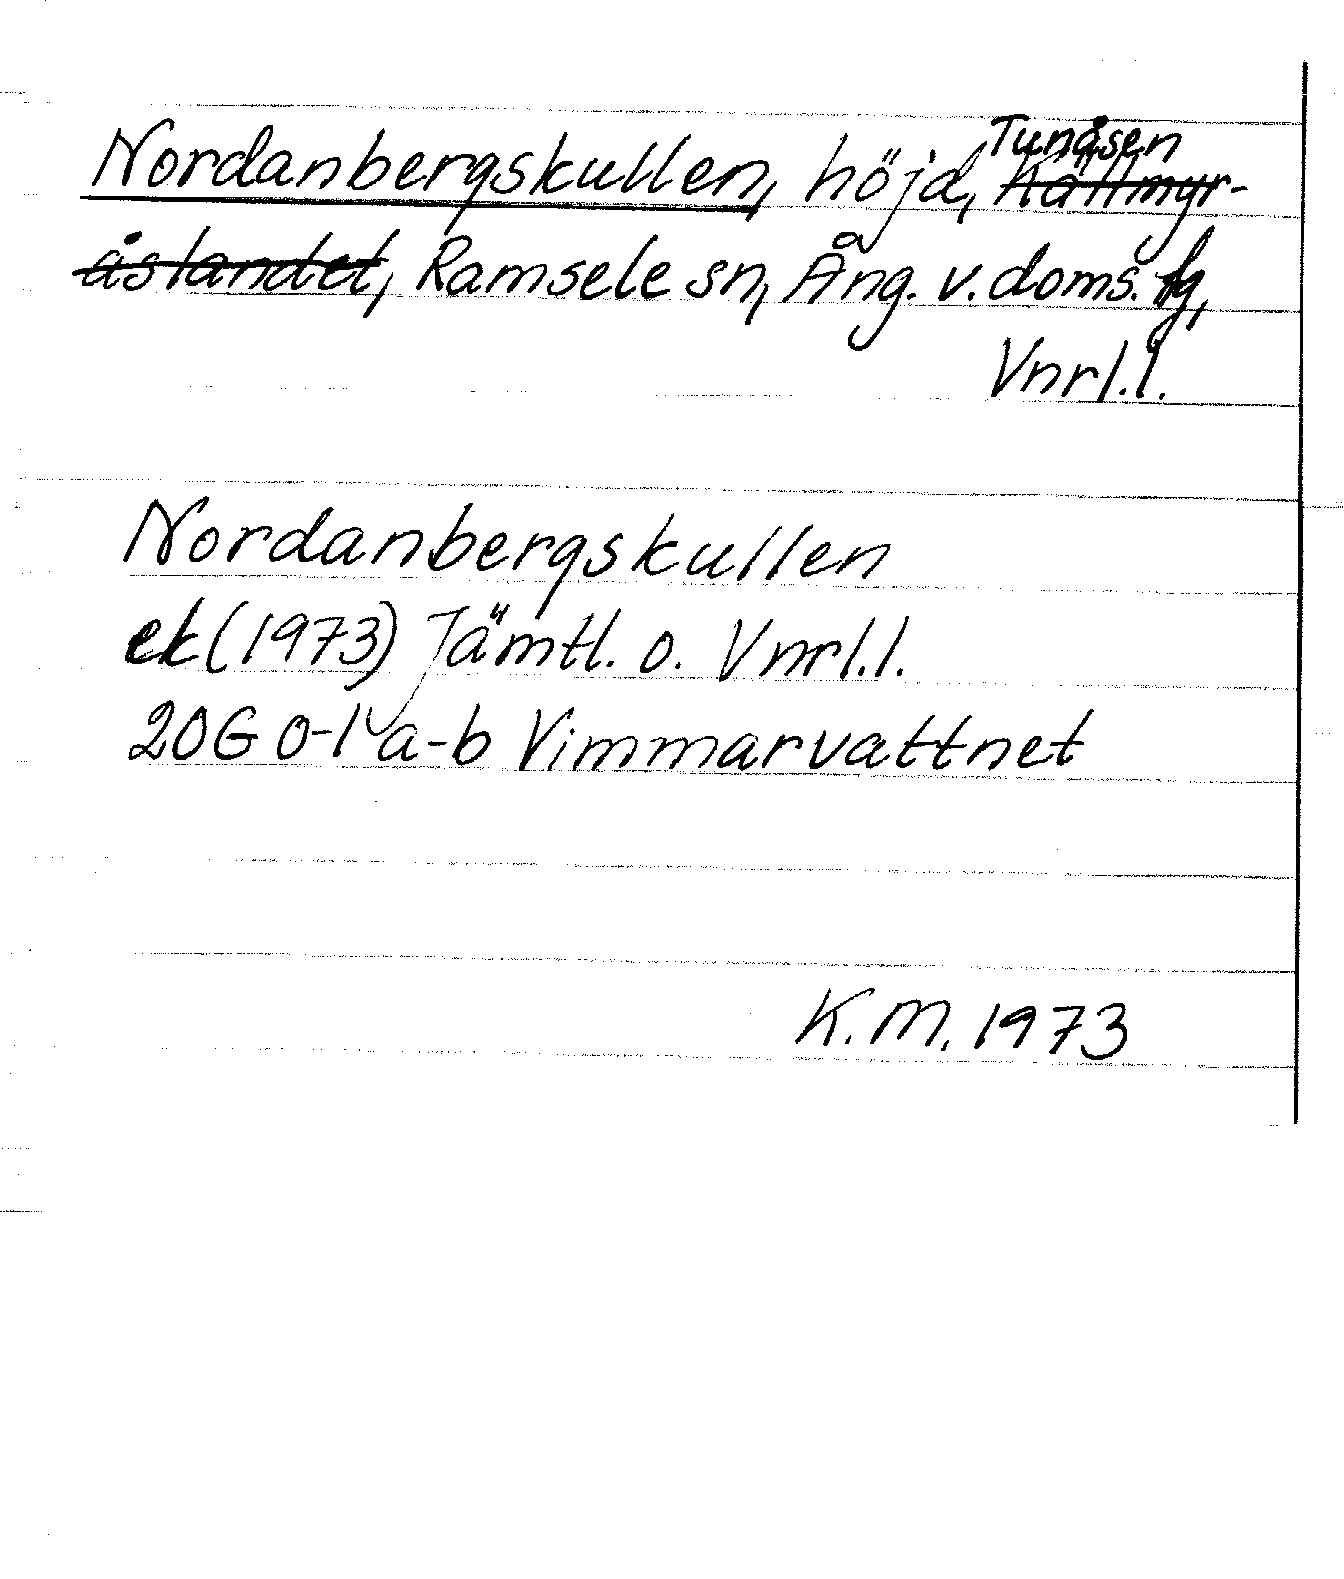 Nordanbergskullen, höjd, Tunåsen Källmyr-
åslandet, Ramsele sn, Ång. v. doms. fg,
Vnrl.l.
Nordanbergskullen
ek (1973) Jämtl. o. Vnrl.l.
20G 0-1 a-b Vimmarvattnet
K.M. 1973